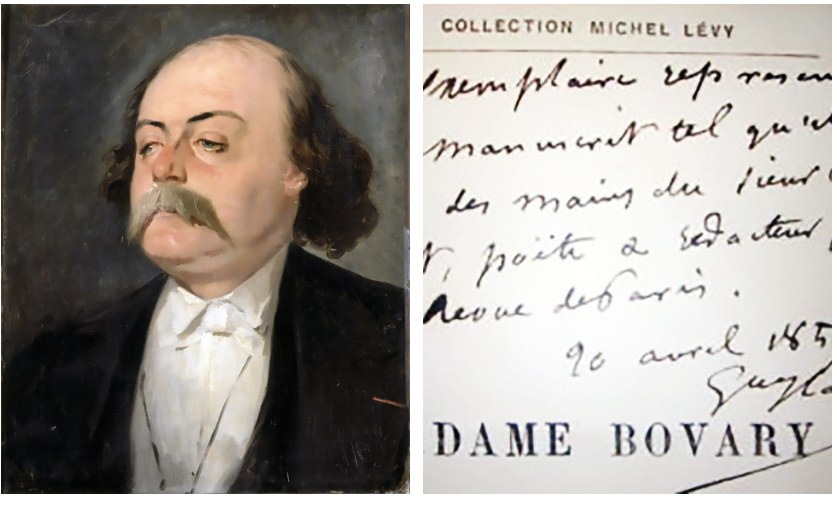 COLLECTION MICHEL LÉVY
Exemplaire représen
manuscrit tel qu'il
des mains du sieur
t, poëte & rédacteur
Revue de Paris.
20 avril 185
Gust
DAME BOVARY